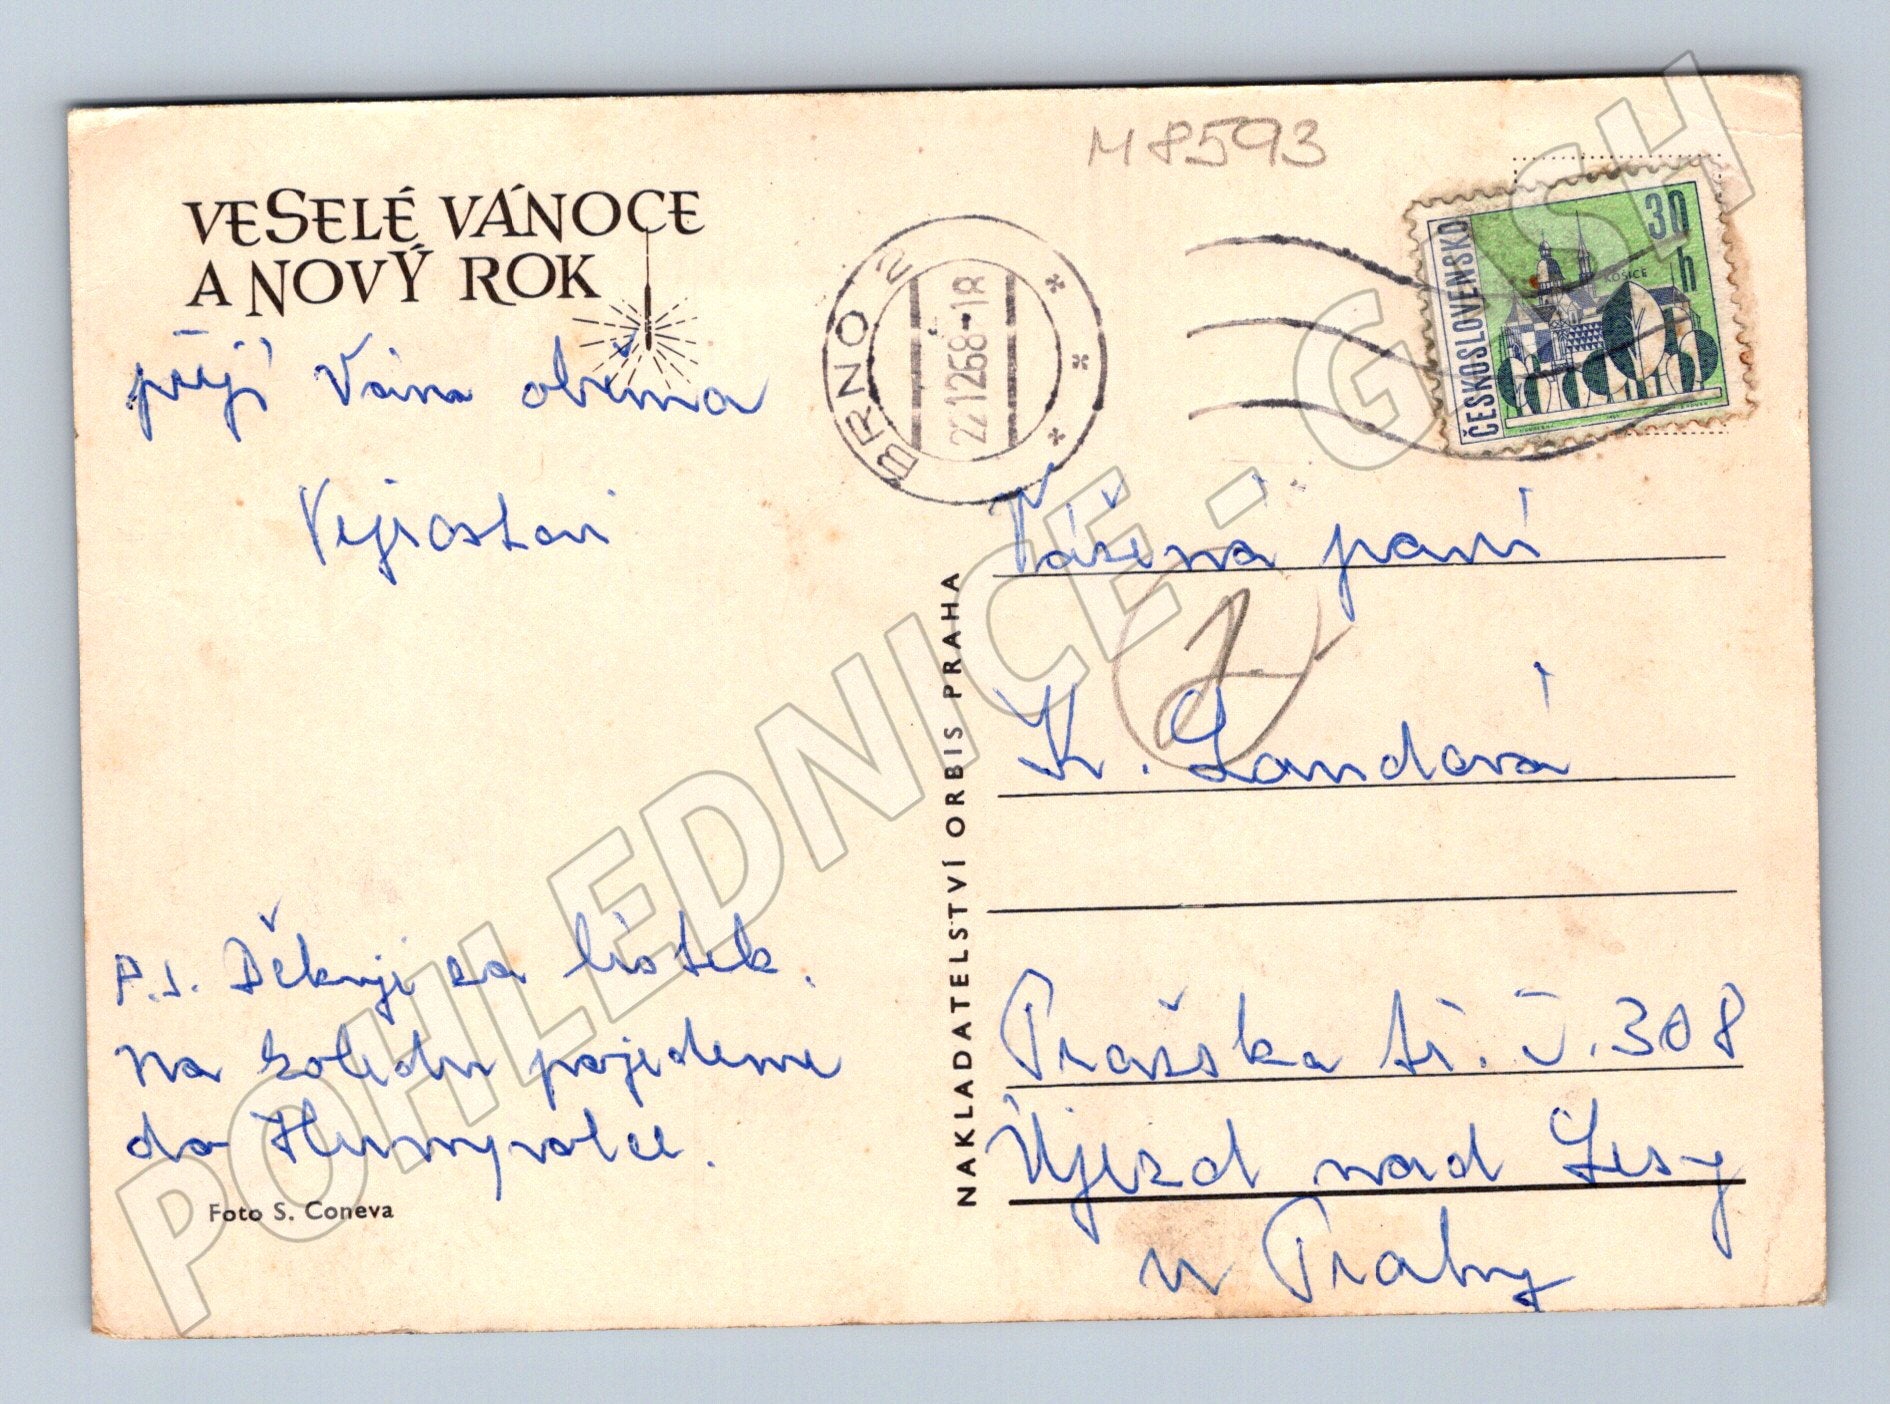 VESELÉ VÁNOCE
A NOVÝ ROK
přejí Vám oběma
P.S. Děkuji za lístek.
Na koledu pojedeme
do Humpolce.
Foto S. Coneva
NAKLADATELSTVÍ ORBIS PRAHA
M8593
BRNO 2
22.12.68-18
ČESKOSLOVENSKO
30
h
KOŠICE
1
Vážená paní
K. Landová
Pražská tř. č. 308
Újezd nad Lesy
u Prahy
POHLEDNICE - G SH